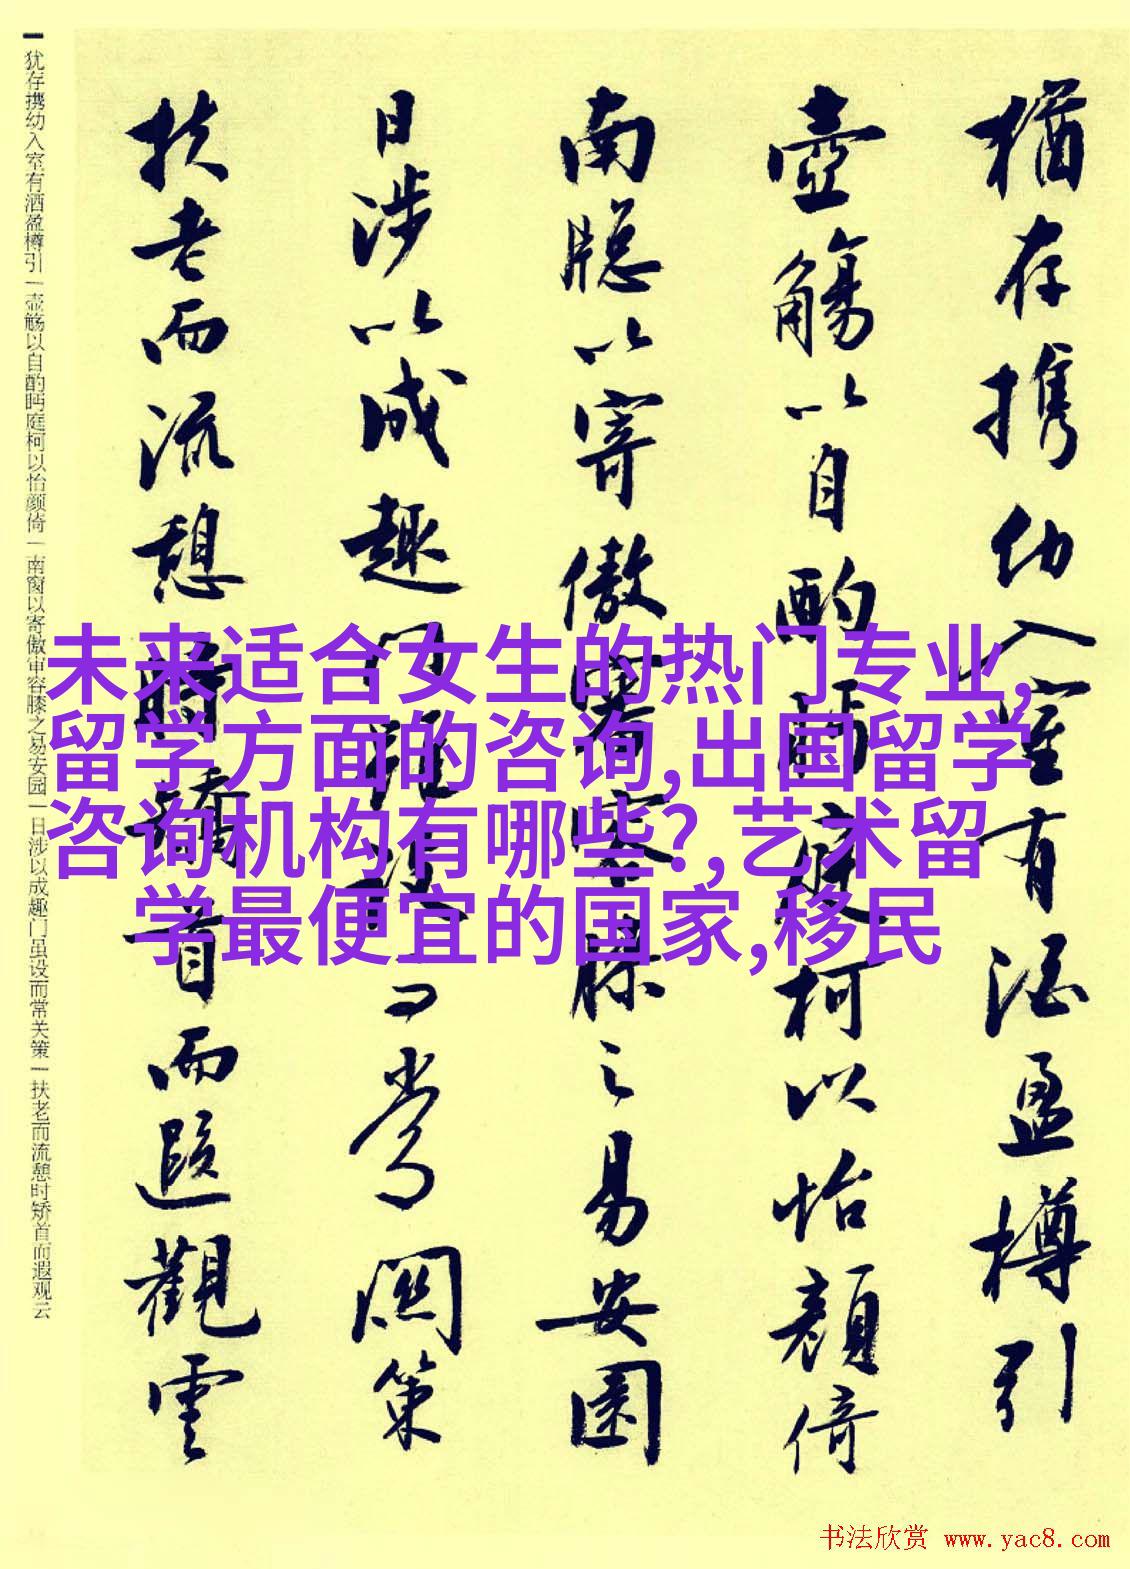 犹存携幼入室有酒盈樽引｜壶觞以自酌眄庭柯以怡颜倚｜南窗以寄傲审容膝之易安园｜日涉以成趣门虽设而常关策｜扶老而流憩时矫首而遐观云
猶存携幼入室有酒盈樽引
壺觴以自酌眄庭柯以怡顔倚
南牕以寄傲審容膝之易安園
日涉以成趣門雖設而常關策
扶老而流憩時矯首而遐觀雲
未来适合女生的热门专业,
留学方面的咨询,出国留学
咨询机构有哪些?,艺术留
学最便宜的国家,移民
书法欣赏 www.yac8.com